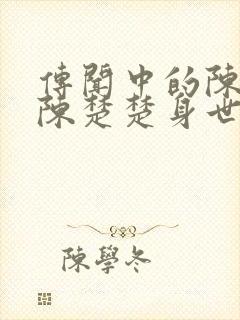 傳聞中的陳
陳楚楚身世
陳學冬